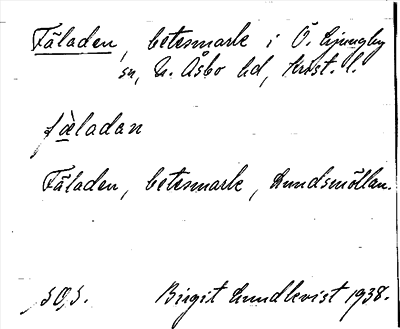 Fäladen, betesmark i Ö. Ljungby
sn, N. Åsbo hd, Krist. l.
fæ̀ladan
Fäladen, betesmark, Lundsmöllan.
Birgit Lundkvist 1938.